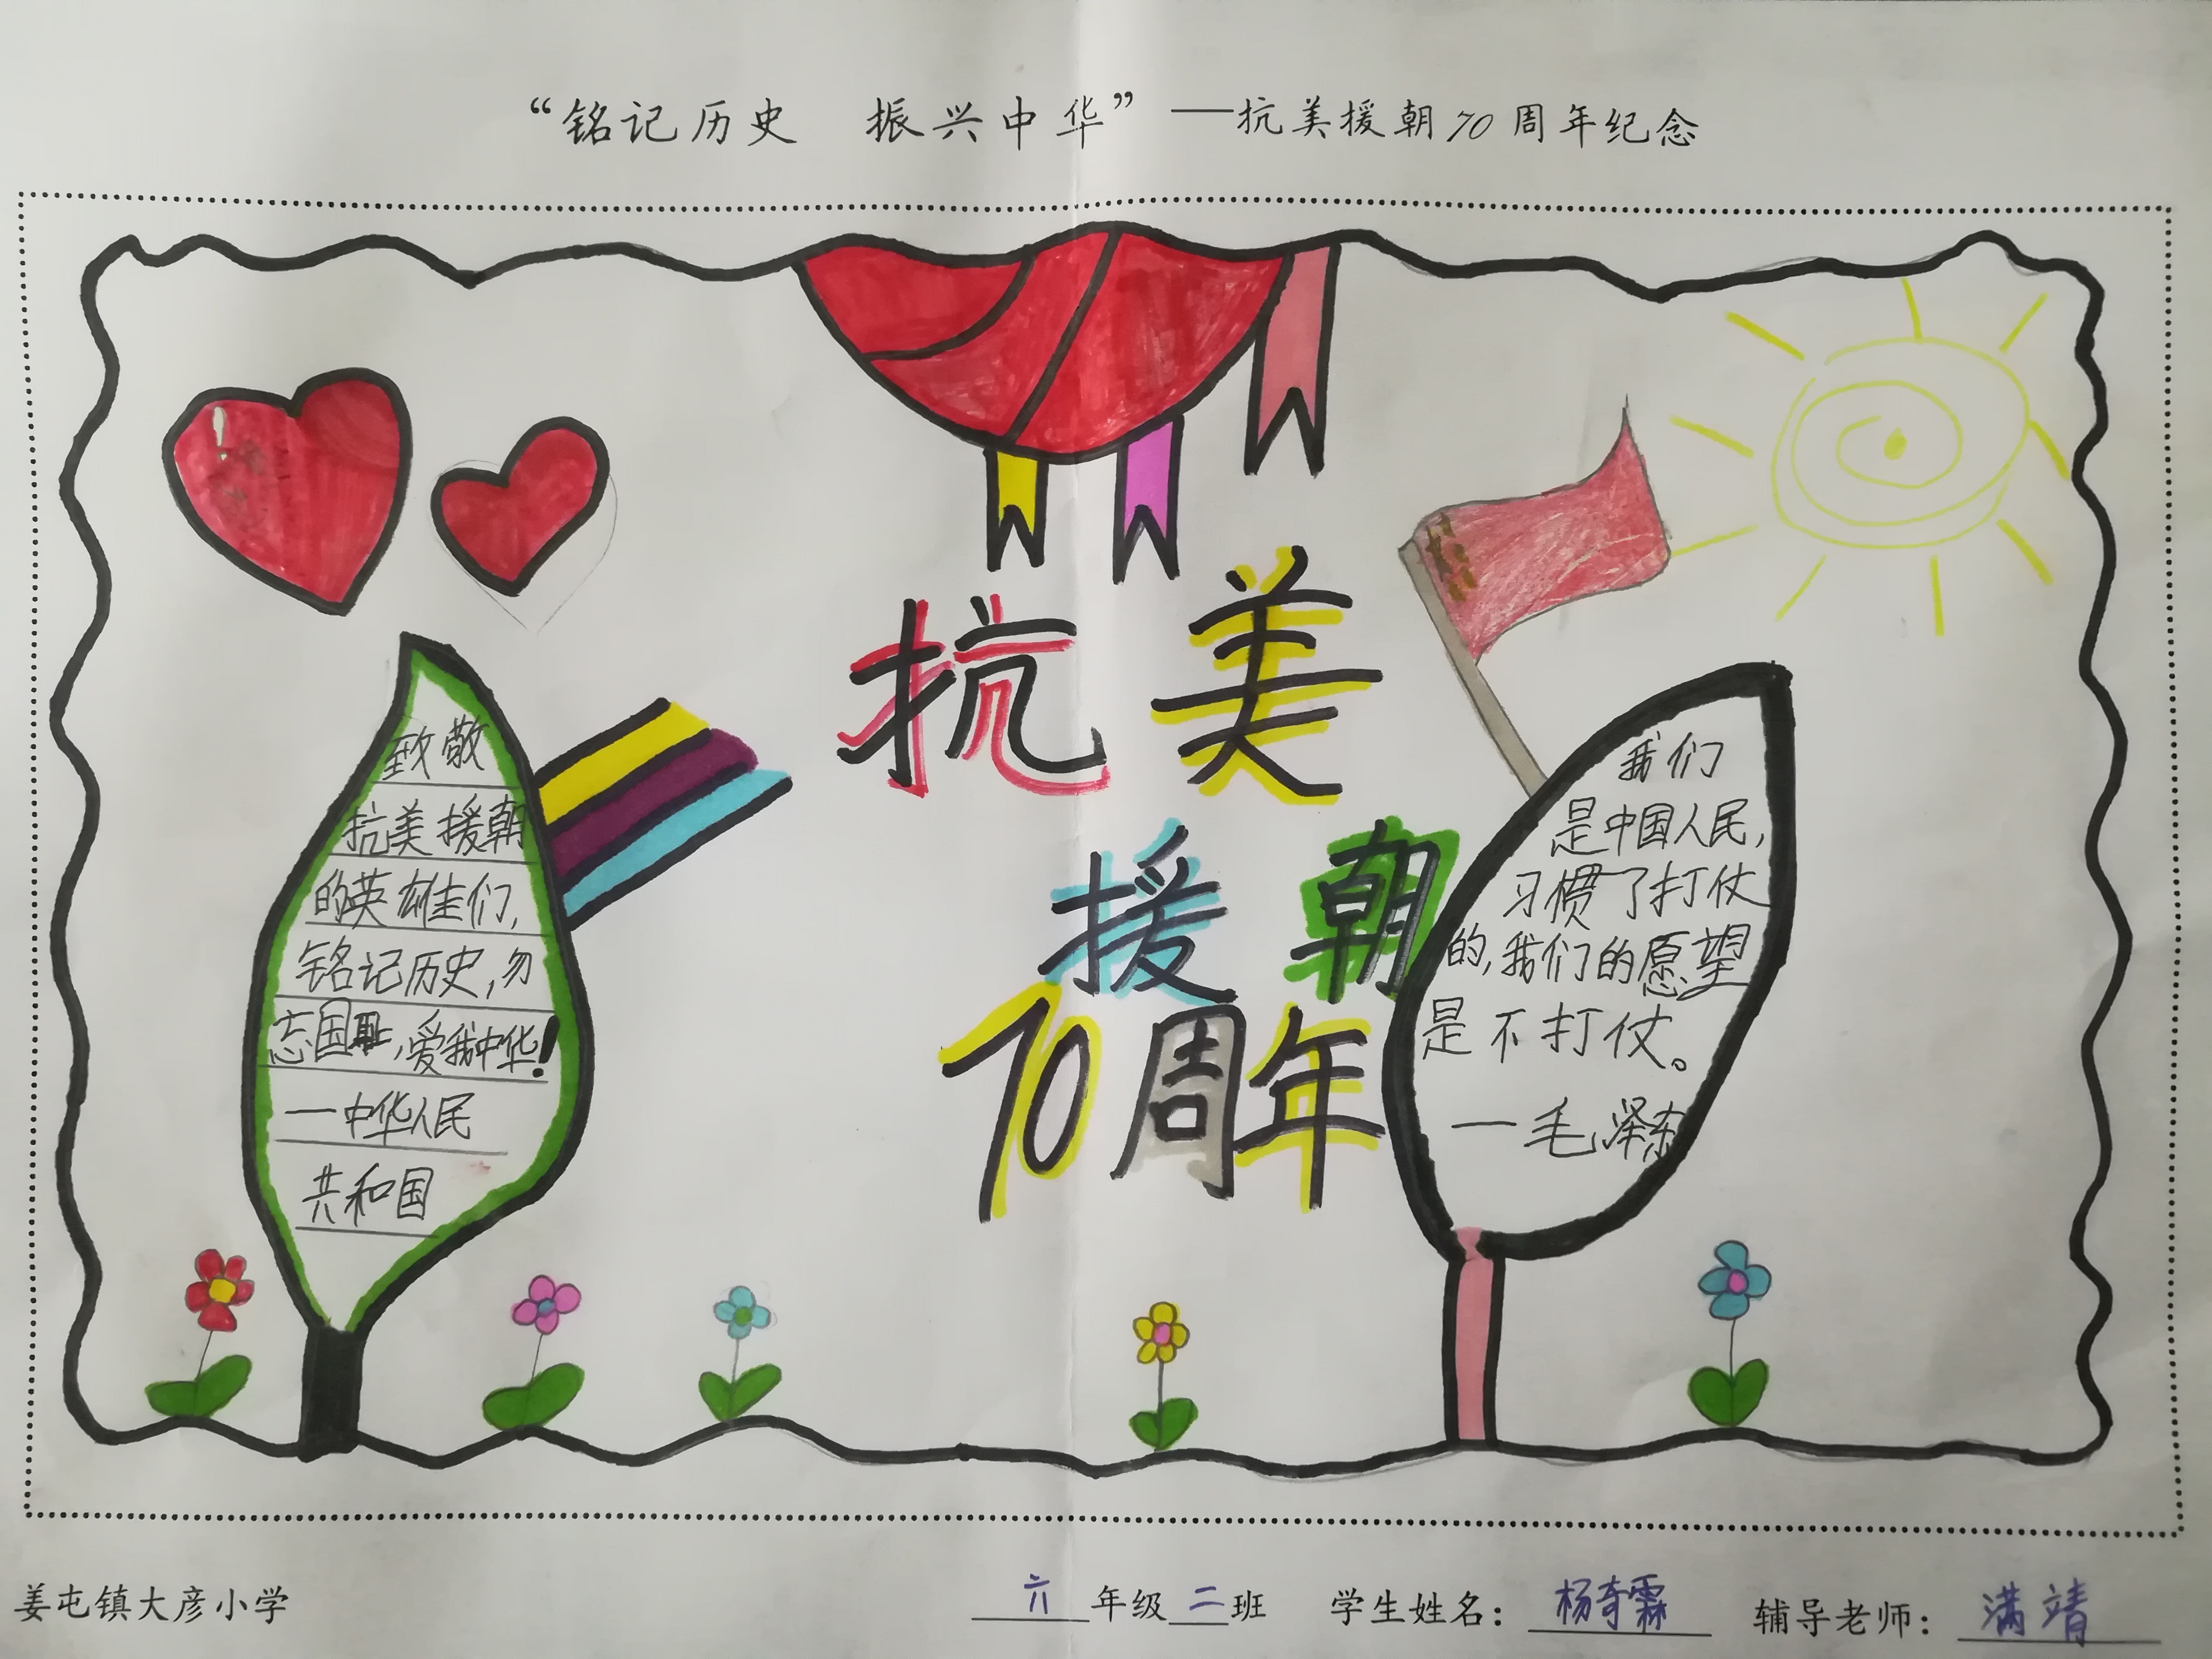 “铭记历史　振兴中华”——抗美援朝70周年纪念
抗美
援朝
70周年
致敬
抗美援朝
的英雄们,
铭记历史,勿
忘国耻,爱我中华!
—中华人民
共和国
我们
是中国人民,
习惯了打仗
的,我们的愿望
是不打仗。
—毛泽东
姜屯镇大彦小学
六年级二班　学生姓名：杨奇霖　辅导老师：满靖